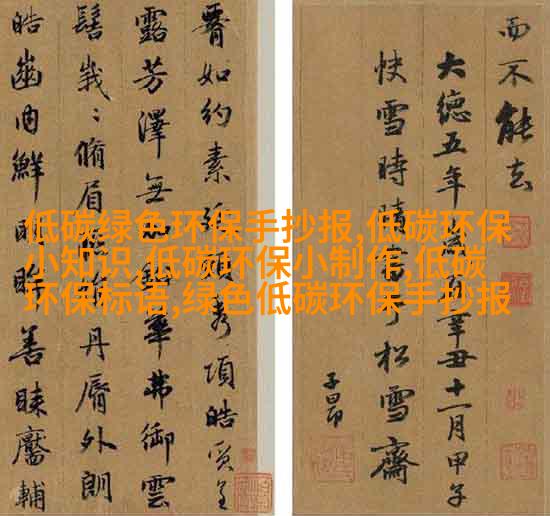 低碳绿色环保手抄报,低碳环保
小知识,低碳环保小制作,低碳
环保标语,绿色低碳环保手抄报
而不能去
大德五年辛丑十一月甲子
快雪時晴書于松雪齋
子昂
如約素延頸秀項皓質呈
露芳澤無鉛華弗御雲
髻峩〻脩眉丹脣外朗
皓齒内鮮明眸善睞靨輔